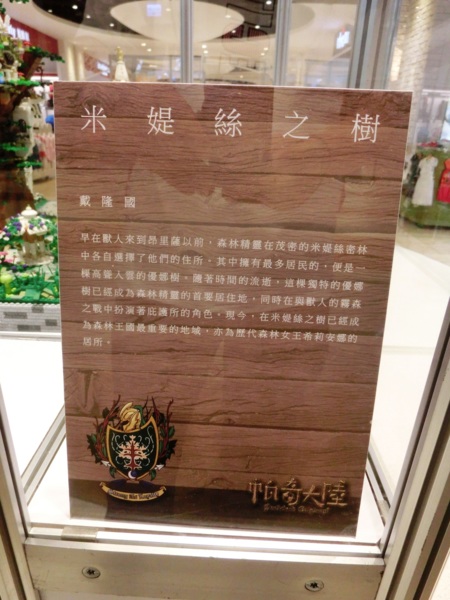 米媞絲之樹
戴隆國
早在獸人來到昂里薩以前，森林精靈在茂密的米媞絲密林
中各自選擇了他們的住所，其中擁有最多居民的，便是一
棵高聳入雲的優娜樹，隨著時間的流逝，這棵獨特的優娜
樹已經成為森林精靈的首要居住地，同時在與獸人的霧森
之戰中扮演著庇護所的角色。現今，在米媞絲之樹已經成
為森林王國最重要的地域，亦為歷代森林女王希莉安娜的
居所。
帕奇大陸